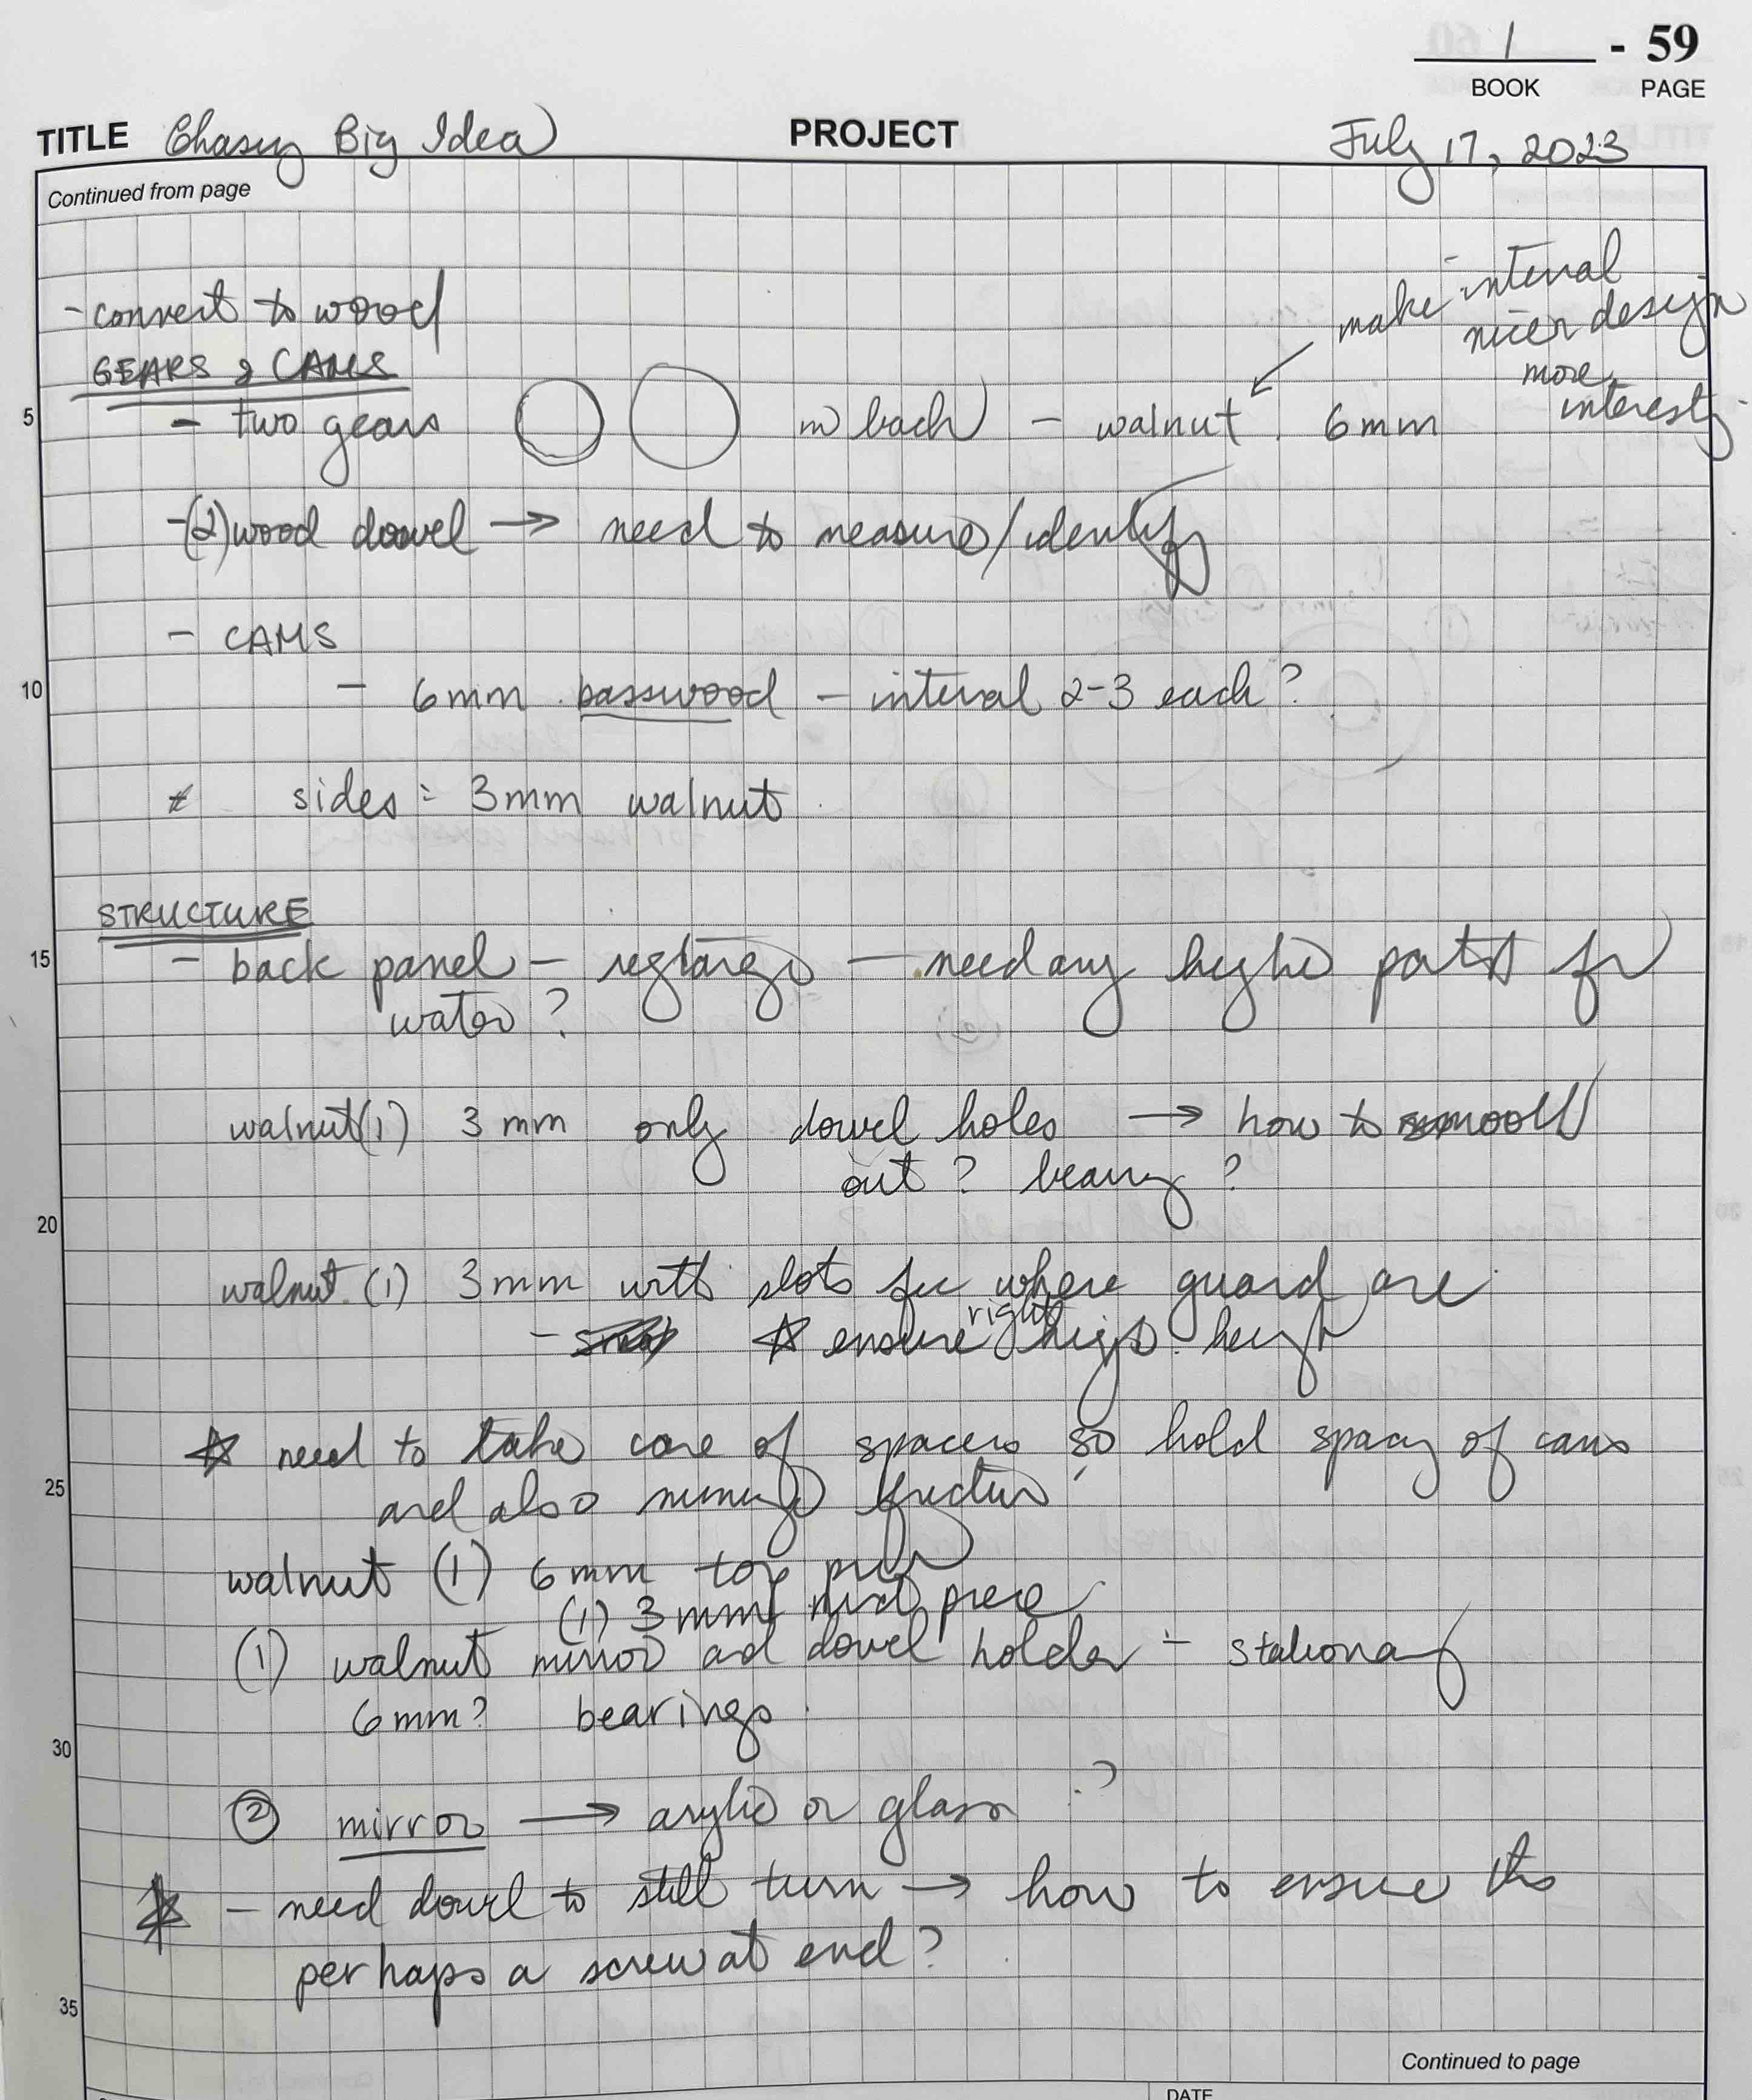 1 - 59
BOOK PAGE
TITLE Chasing Big Idea PROJECT July 17, 2023
Continued from page
make internal
nicer design
more
interesting
- convert to wood
GEARS & CAMS
5 - two gears in back - walnut 6mm
- (2) wood dowel → need to measure/identify
- CAMS
10 - 6mm basswood - internal 2-3 each?
* sides = 3mm walnut
STRUCTURE
15 - back panel - - need any higher parts for
water?
walnut (1) 3mm only dowel holes → how to smooth
out? bearing?
20
walnut (1) 3mm with slots for where guard are
- ☆ ensure right height
☆ need to take care of spacers so hold spacing of cams
25 and also minimize friction
walnut (1) 6mm top
(1) 3mm mid piece
(1) walnut mirror and dowel holder - stationary
6mm? bearings
30
② mirror → acrylic or glass ?
☆ - need dowel to still turn → how to ensure this
perhaps a screw at end?
35
Continued to page
DATE